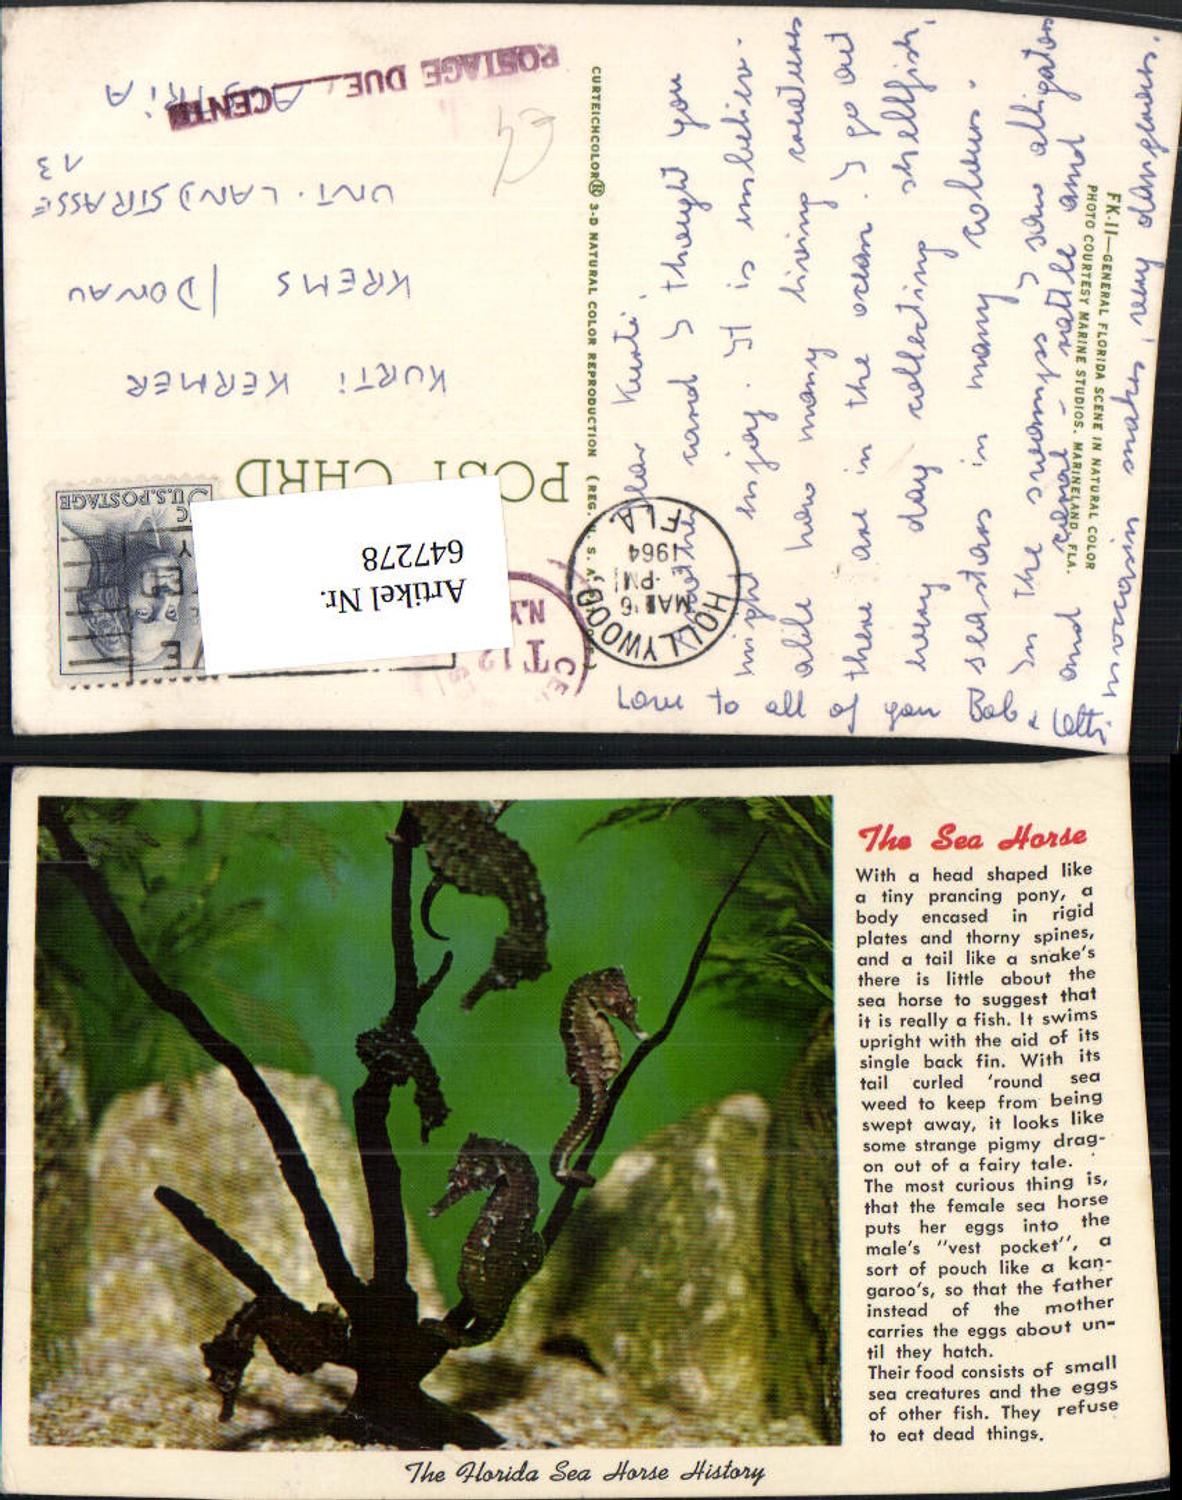 POSTAGE DUE
CENTS
AUSTRIA
UNT. LANDSTRASSE
13
KREMS / DONAU
KURTI KERMER
POST CARD
U.S. POSTAGE
Artikel Nr.
647278
HOLLYWOOD
FLA.
PM
1964
N.Y.
CURTEICHCOLOR® 3-D NATURAL COLOR REPRODUCTION (REG. U. S. A.
FK-11—GENERAL FLORIDA SCENE IN NATURAL COLOR
PHOTO COURTESY MARINE STUDIOS, MARINELAND, FLA.
Dear Kurti,
another card I thought you
might enjoy. It is unbeliev-
able how many living creatures
there are in the ocean. I go out
every day collecting shellfish,
seastars in many colours.
In the swamps I saw alligators
and coral-rattle and
moccasin snakes, very dangerous.
Love to all of you Bob & Otti
The Sea Horse
With a head shaped like
a tiny prancing pony, a
body encased in rigid
plates and thorny spines,
and a tail like a snake's
there is little about the
sea horse to suggest that
it is really a fish. It swims
upright with the aid of its
single back fin. With its
tail curled 'round sea
weed to keep from being
swept away, it looks like
some strange pigmy drag-
on out of a fairy tale.
The most curious thing is,
that the female sea horse
puts her eggs into the
male's "vest pocket", a
sort of pouch like a kan-
garoo's, so that the father
instead of the mother
carries the eggs about un-
til they hatch.
Their food consists of small
sea creatures and the eggs
of other fish. They refuse
to eat dead things.
The Florida Sea Horse History